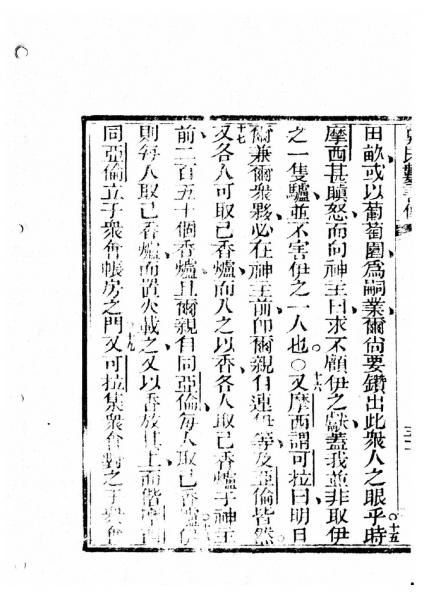 田畝或以葡萄園爲嗣業爾尚要鑽出此衆人之眼乎十五時
摩西甚瞋怒而向神主曰求不顧伊之獻蓋我並非取伊
之一隻驢並不害伊之一人也○十六又摩西謂可拉曰明日
爾兼爾衆夥必在神主前卽爾親自連伊等及亞倫皆然
十七又各人可取己香爐而入之以香各人取己香爐于神主
前二百五十個香爐且爾親自同亞倫每人取己香爐伊
則每人取己香爐而置火載之又以香放其上而皆
同亞倫立于衆會帳房之門十九又可拉集衆會對之于衆會